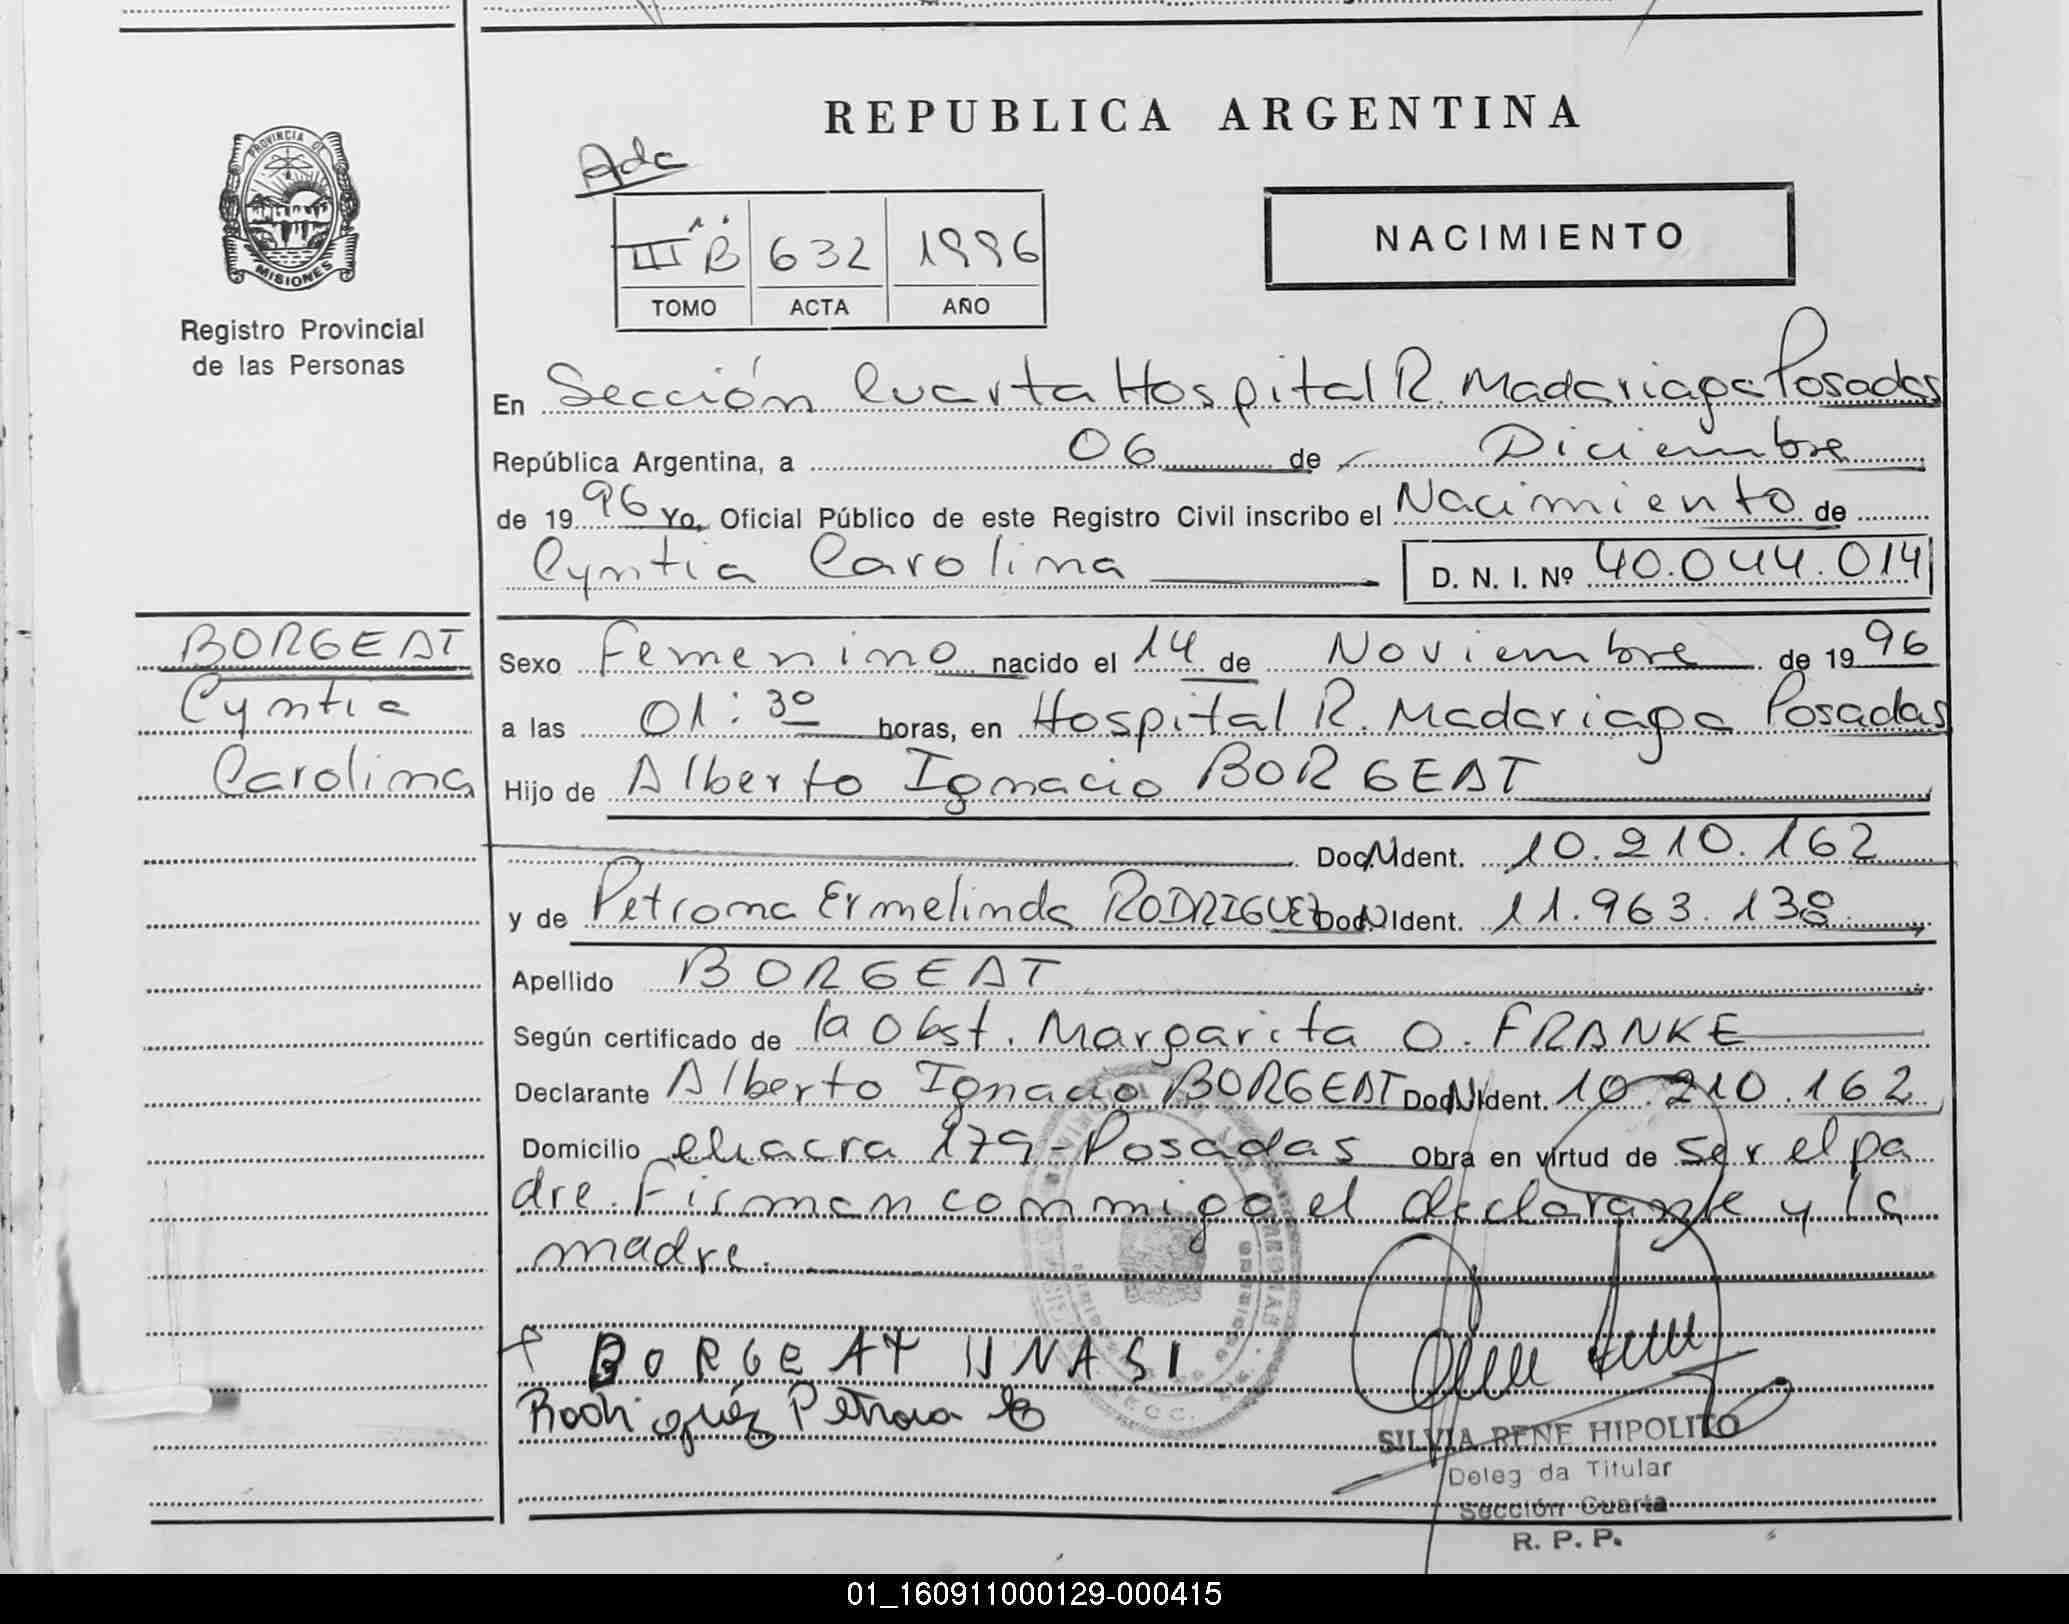 REPUBLICA ARGENTINA
PROVINCIA DE
MISIONES
Registro Provincial
de las Personas
Adc
III B 632 1996
TOMO ACTA AÑO
NACIMIENTO
En Sección Cuarta Hospital R. Madariaga Posadas
República Argentina, a 06 de Diciembre
de 1996 Yo, Oficial Público de este Registro Civil inscribo el Nacimiento de
Cyntia Carolina D. N. I. Nº 40.044.014
BORGEAT
Cyntia
Carolina
Sexo Femenino nacido el 14 de Noviembre de 1996
a las 01:30 horas, en Hospital R. Madariaga Posadas
Hijo de Alberto Ignacio BORGEAT
Doc. N Ident. 10.210.162
y de Petrona Ermelinda RODRIGUEZ Doc. N Ident. 11.963.138
Apellido BORGEAT
Según certificado de la Obst. Margarita O. FRANKE
Declarante Alberto Ignacio BORGEAT Doc. N Ident. 10.210.162
Domicilio chacra 179-Posadas Obra en virtud de ser el pa
dre. Firman conmigo el declarante y la
madre.
BORGEAT
Rodriguéz Petrona E
SILVIA RENE HIPOLITO
Deleg da Titular
Sección Cuarta
R. P. P.
01_160911000129-000415